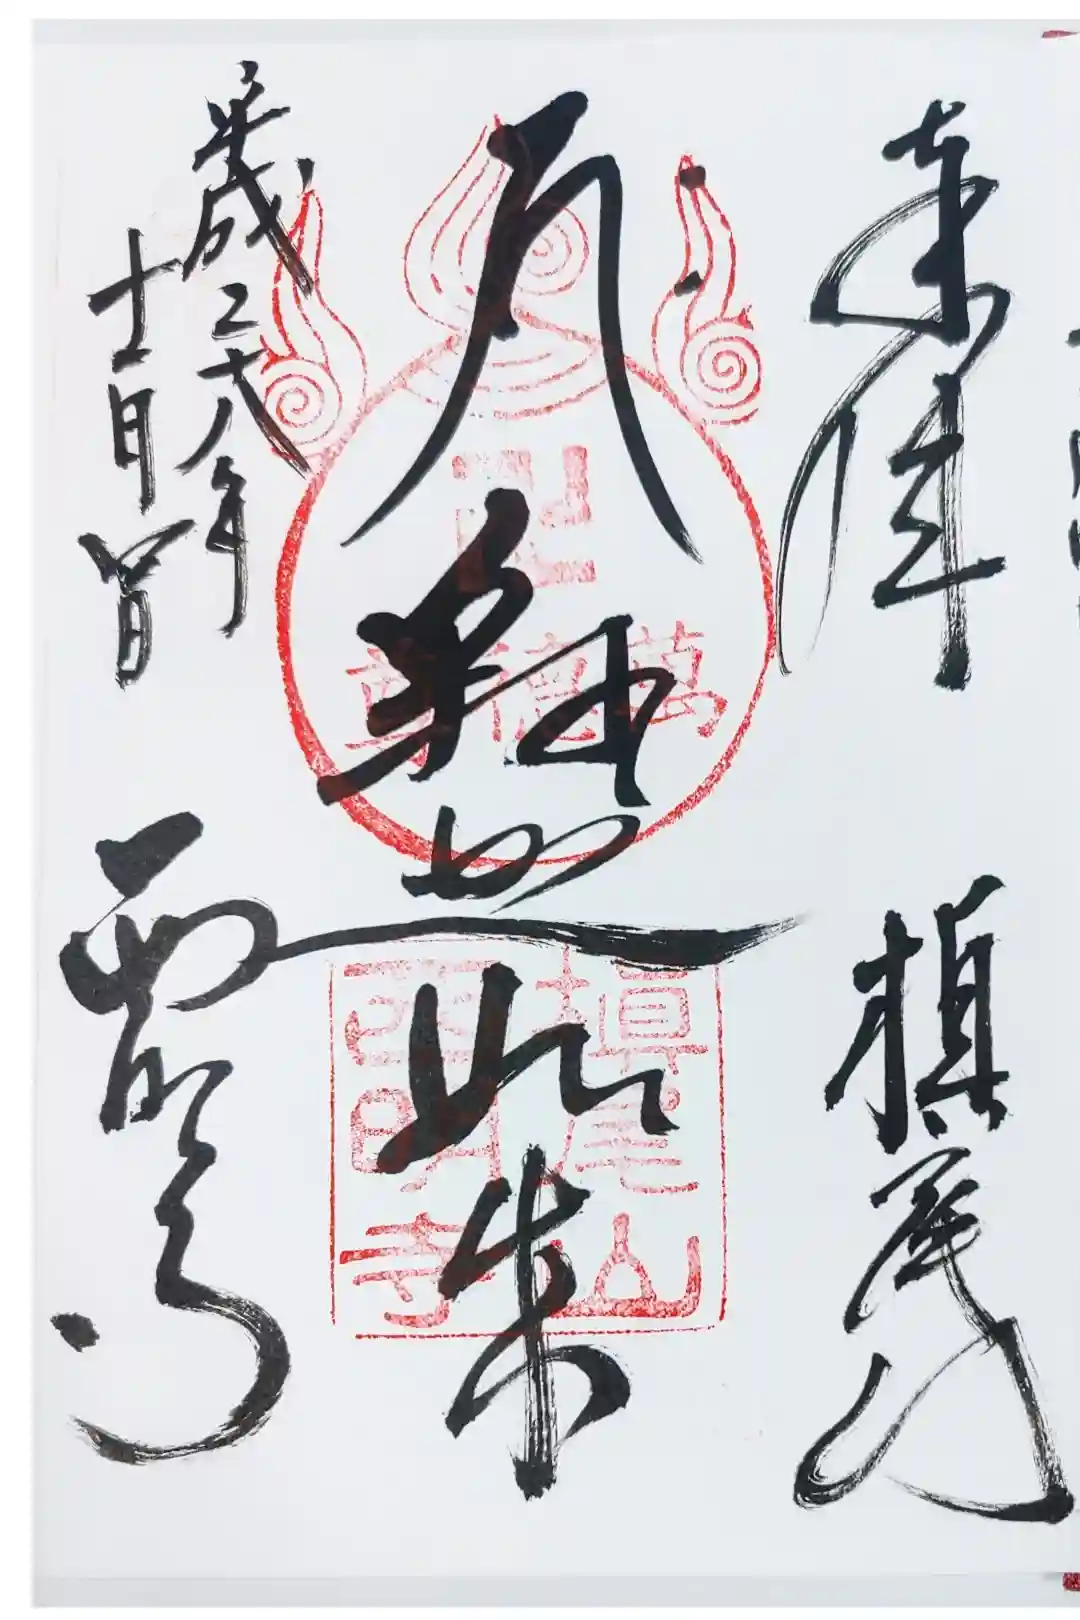 奉拝
槇尾山
釈迦如来
平成二十八年
十一月
西明寺
萬徳尊
槇尾山
西明寺